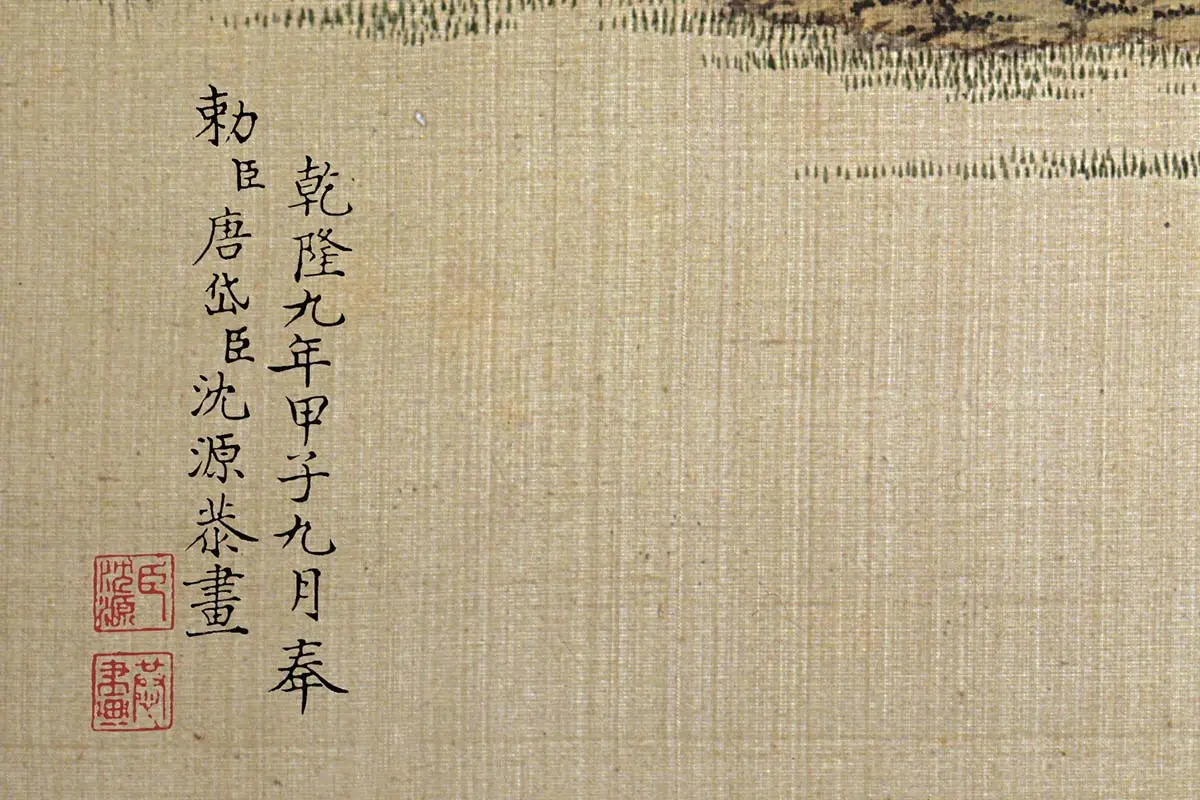 乾隆九年甲子九月奉
勅臣唐岱臣沈源恭畫
臣沈源
恭畫